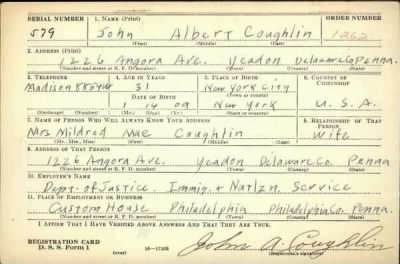 SERIAL NUMBER 1. NAME (Print) ORDER NUMBER
579 John Albert Coughlin 1262
(First) (Middle) (Last)
2. ADDRESS (Print)
1226 Angora Ave. Yeadon Delaware Co Penna.
(Number and street or R. F. D. number) (Town) (County) (State)
3. TELEPHONE 4. AGE IN YEARS 5. PLACE OF BIRTH 6. COUNTRY OF CITIZENSHIP
Madison 31 New York City
DATE OF BIRTH
1 14 09 New York U. S. A.
(Exchange) (Number) (Mo.) (Day) (Yr.) (State or country)
7. NAME OF PERSON WHO WILL ALWAYS KNOW YOUR ADDRESS 8. RELATIONSHIP OF THAT PERSON
Mrs Mildred Mae Coughlin Wife
(Mr., Mrs., Miss) (First) (Middle) (Last)
9. ADDRESS OF THAT PERSON
1226 Angora Ave. Yeadon Delaware Co. Penna
(Number and street or R. F. D. number) (Town) (County) (State)
10. EMPLOYER'S NAME
Dept. of Justice. Immig. & Natlzn. Service
11. PLACE OF EMPLOYMENT OR BUSINESS
Custom House Philadelphia Philadelphia Co. Penna.
(Number and street or R. F. D. number) (Town) (County) (State)
I AFFIRM THAT I HAVE VERIFIED ABOVE ANSWERS AND THAT THEY ARE TRUE.
REGISTRATION CARD
D. S. S. Form 1 (over) 16—17105 John A. Coughlin
(Registrant's signature)